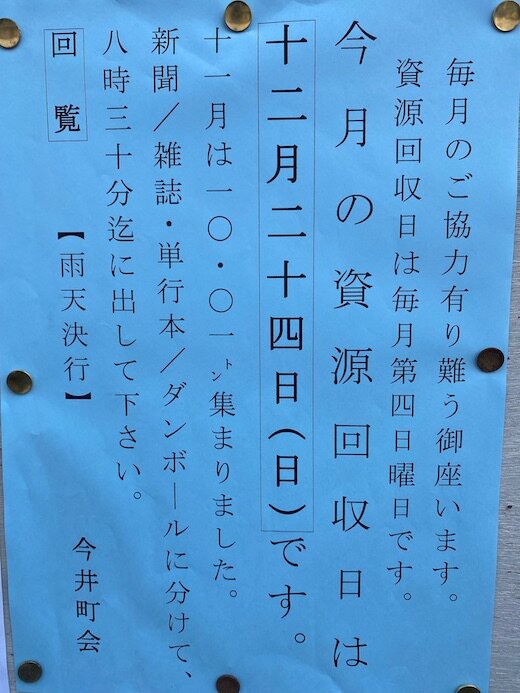 毎月のご協力有り難う御座います。
資源回収日は毎月第四日曜日です。
今月の資源回収日は
十二月二十四日(日)です。
十一月は一〇・〇一㌧集まりました。
新聞/雑誌・単行本/ダンボールに分けて、
八時三十分迄に出して下さい。
回覧 【雨天決行】 今井町会